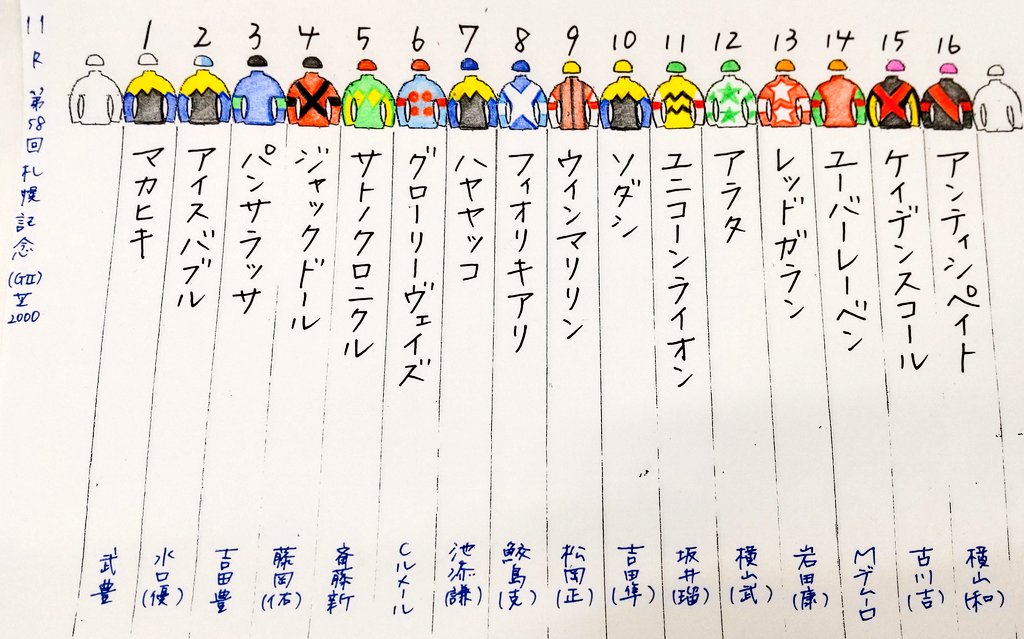 11R 第58回札幌記念(GⅡ)芝2000
1 2 3 4 5 6 7 8 9 10 11 12 13 14 15 16
マカヒキ
アイスバブル
パンサラッサ
ジャックドール
サトノクロニクル
グローリーヴェイズ
ハヤヤッコ
フィオリキアリ
ウインマリリン
ソダシ
ユニコーンライオン
アラタ
レッドガラン
ユーバーレーベン
ケイデンスコール
アンティシペイト
武豊
水口(優)
吉田豊
藤岡(佑)
斎藤新
Cルメール
池添(謙)
鮫島(克)
松岡(正)
吉田(隼)
坂井(瑠)
横山(武)
岩田(康)
Mデムーロ
古川(吉)
横山(和)